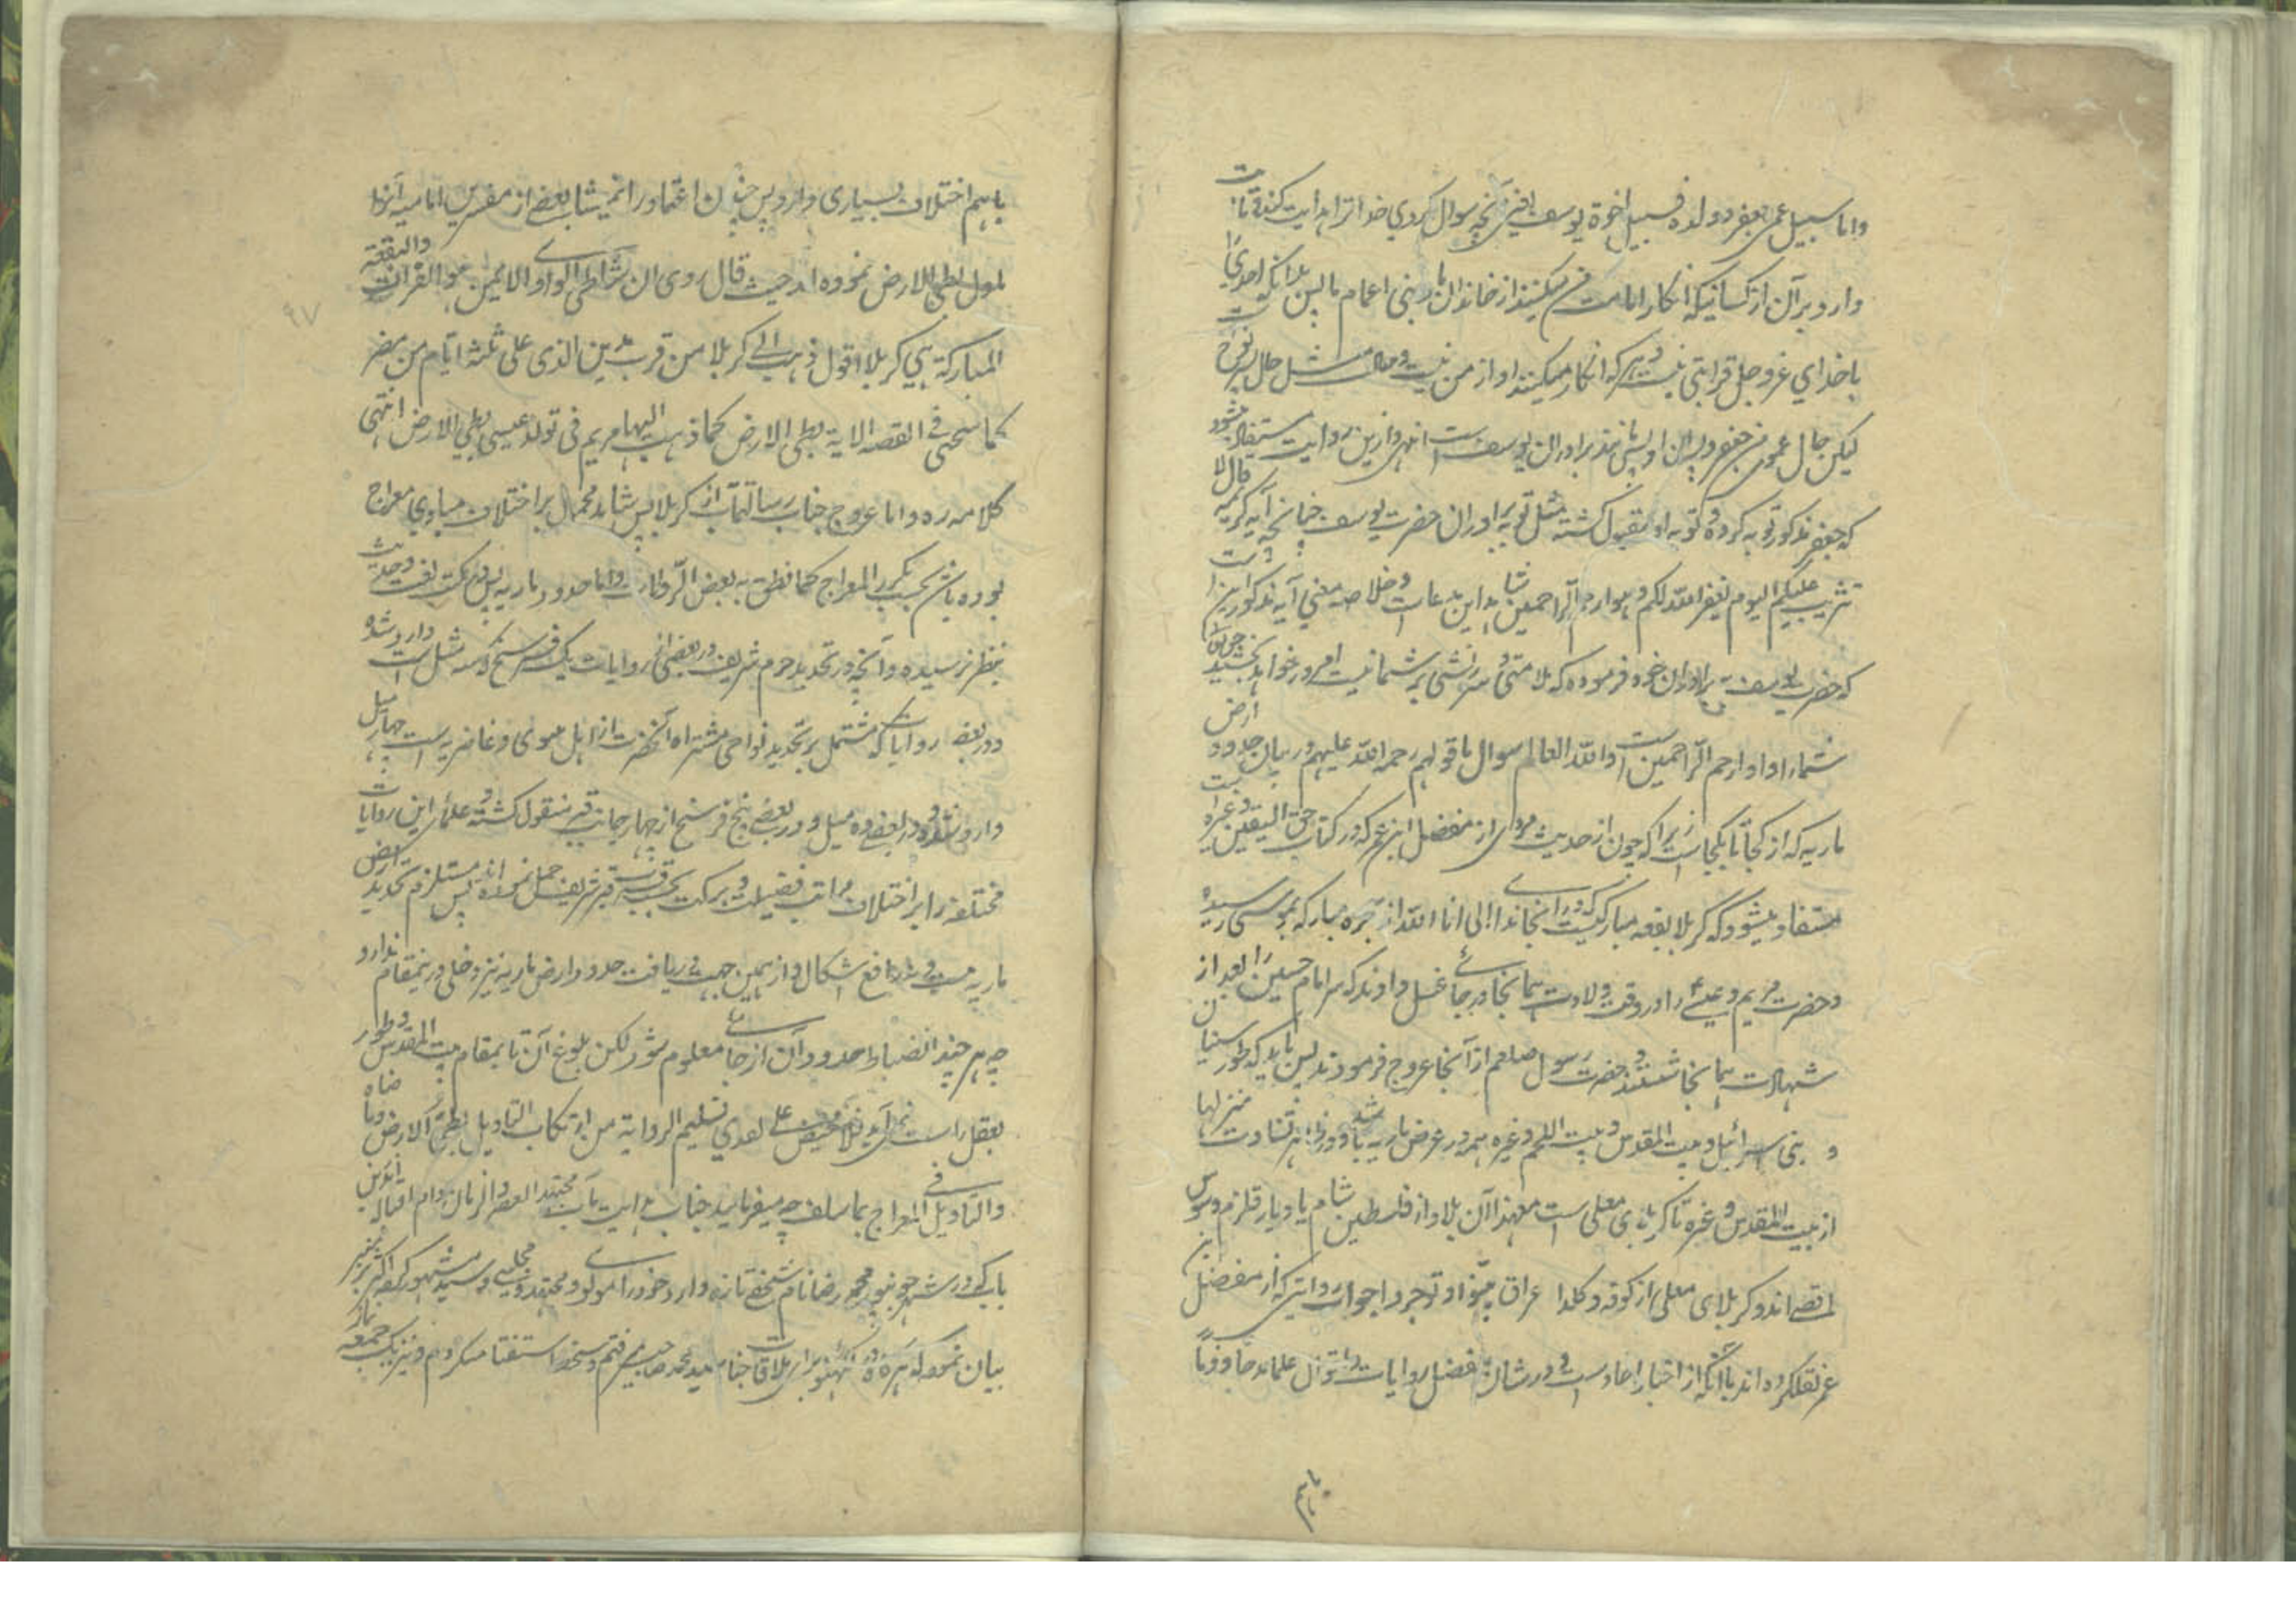 واما سبیل عمی جعفر و ولده فسبیل اخوة یوسف یعنی آنچه سوال کردی خدا ترا هدایت کند و ثابت
دارد بر آن از کسانیکه انکار امامت من میکنند از خاندان ما و بنی اعمام ما پس بدانکه احدیرا
با خدای عز و جل قرابتی نیست و هر که انکار میکند او از من نیست و حال مثل حال پسر نوح است
لیکن حال عموی من جعفر و پسران او پس مانند برادران یوسف است انتهی و ازین روایت مستفاد میشود
که جعفر مذکور توبه کرده و توبه او مقبول گشته مثل توبه برادران حضرت یوسف چنانچه آیه کریمه قال لا
تثریب علیکم الیوم یغفر الله لکم و هو ارحم الراحمین شاهد این مدعاست و خلاصه معنی آیه مذکوره این است
که حضرت یوسف به برادران خود فرموده که ملامتی و سرزنشی بر شما نیست امروز خواهد بخشید حق تعالی
شما را و او ارحم الراحمین است والله العالم سوال ما قولهم رحمه الله علیهم در بیان حدود ارض
ماریه که از کجا تا بکجاست زیرا که چون از حدیث مروی از مفضل ابن عمر که در کتاب حق الیقین و غیره است
مستفاد میشود که کربلا بقعه مبارکه ایست که در انجا ندای انی انا الله از شجره مبارکه بموسی رسیده
و حضرت مریم و عیسی را در وقت ولادت همانجا در جائی غسل دادند که سر امام حسین را بعد از
شهادت همانجا شستند و حضرت رسول صلعم از آنجا عروج فرمودند پس باید که طور سینا
و بنی اسرائیل و بیت المقدس و بیت اللحم و غیره همه در عرض ماریه باشد و درنه تفاوت منزلها
از بیت المقدس و غیره تا کربلای معلی است معهذا آن بلاد از فلسطین شام یا دیار قلزم و سوس
اقصی اند و کربلای معلی از کوفه و کلدا عراق بینوا توجروا جواب روایتی که از مفضل بن
عمر نقل کرده اند باآنکه از اخبار احاد است و در شان مفضل روایات و اقوال علما مدحا و ذما
باهم
باهم اختلاف بسیاری دارد پس چندان اعتماد را نمیشاید بعض از مفسرین امامیه آنرا
مول بطی الارض نموده اند حیث قال روی ان شاطئ الواد الایمن هو الفرات والبقعة
المبارکة هی کربلا اقول ذهب الی کربلا من قرب مدین الذی علی ثلثة ایام من مصر
کما سیجئی فی القصه الایة بطی الارض کما ذهب الیها مریم فی تولد عیسی بطی الارض انتهی
کلامه ره واما عروج جناب رسالتمآب از کربلا پس شاید محمول بر اختلاف مبادی معراج
بوده باشد بحسب تکرر المعراج کما نطق به بعض الروایات واما حدود ماریه پس در کتب لغت و حدیث
بنظر نرسیده و آنچه در تحدید حرم شریف در بعضی از روایات یک فرسخ و سه مثل است وارد شده
و در بعض روایات که مشتمل بر تحدید نواحی مشتراه آنحضرت از اهل نینوی و غاضریه است چهار میل
وارد شده و در بعضی ده میل و در بعضی پنج فرسخ از چهار جانب قبر منقول گشته و علمای این روایات
مختلفه را بر اختلاف مراتب فضیلت و برکت بحسب قرب قبر شریف حمل نموده اند پس مستلزم تحدید ارض
ماریه نیست و نه دافع اشکال و از همین جهت دریافت حدود ارض ماریه نیز دخلی درینمقام ندارد
چه هر چند انضباط حدود آن از جائی معلوم شود لکن بلوغ آن تا بمقام بیت المقدس و طور
بعقل راست نمی آید فلا محیص علی تقدیر تسلیم الروایة من ارتکاب التاویل بطی الارض و ما ضاهاه
والتاویل فی المعراج بما سلف چه میفرمایند جناب هدایت مآب مجتهد العصر و الزمان دام اقباله اندرین
باب که در شهر جونپور محمد رضا نام شخصی تازه وارد خود را مولوی و مجتهد و سید مشهور کرده اکثر بر منبر
بیان نموده که هرگاه در لکهنو برای ملاقات جناب سید محمد صاحب میرفتم و مسخرا استفتا میکردم و نیز یک جمعه نماز